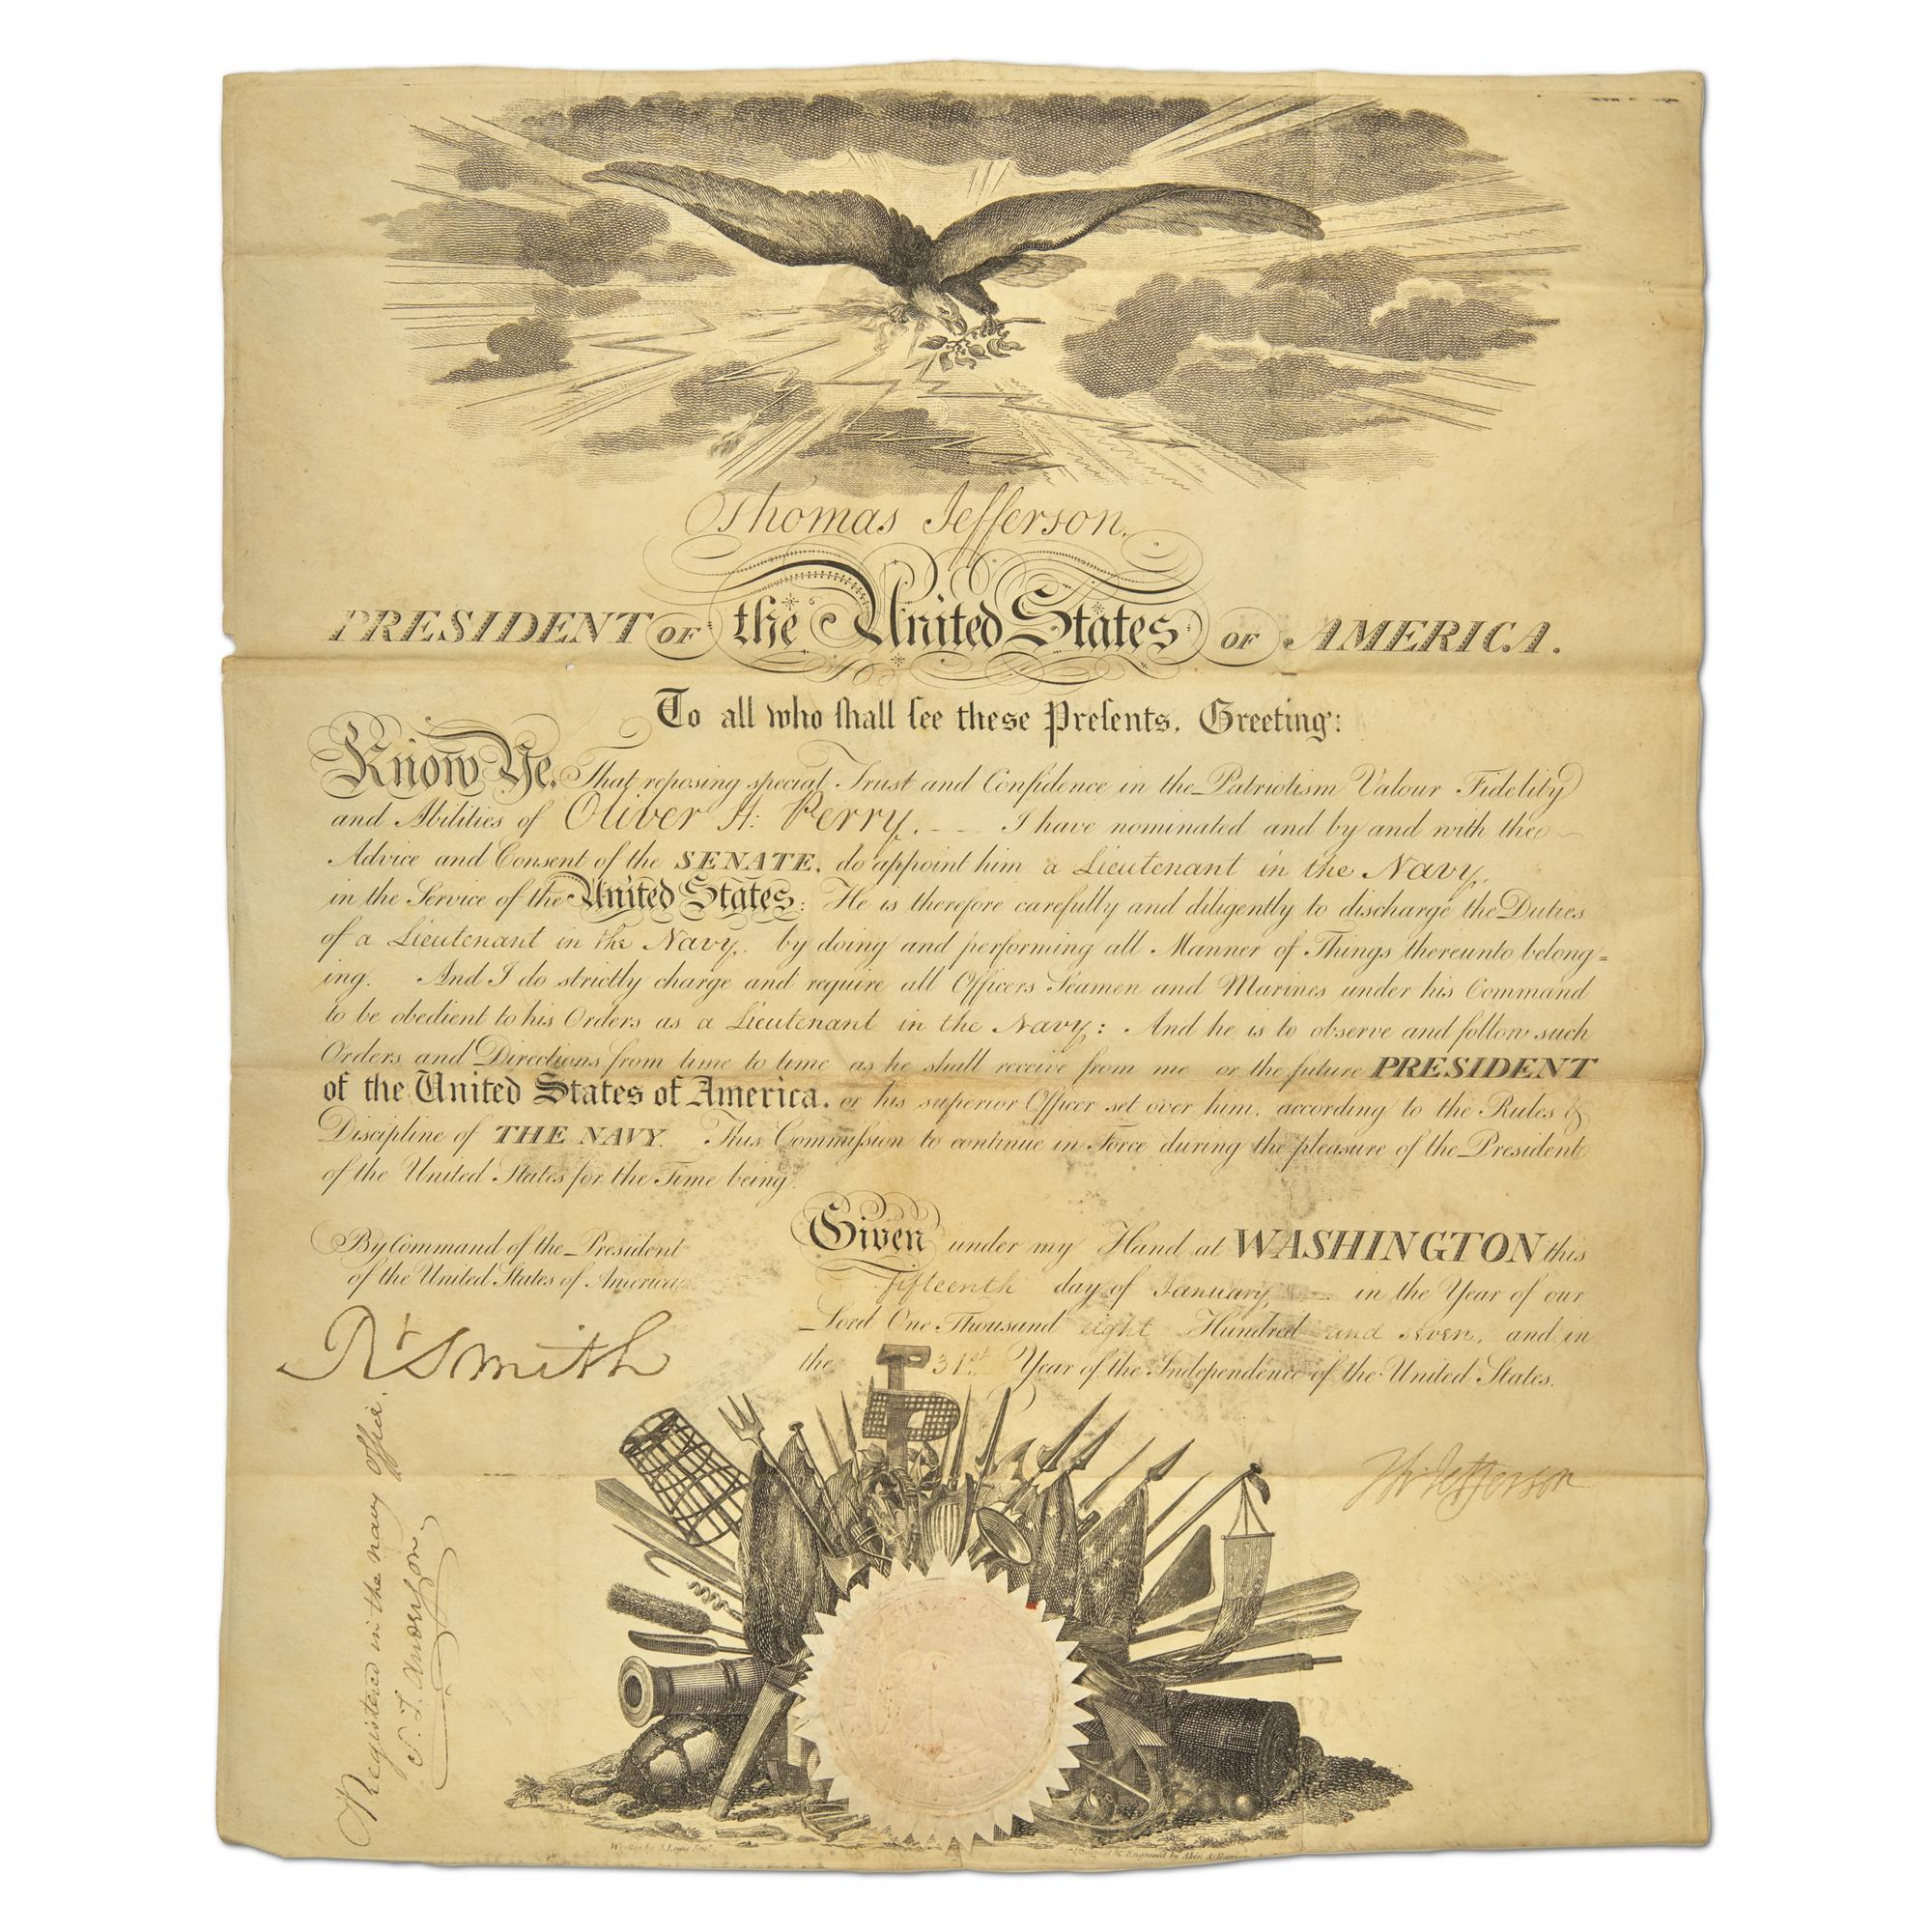 Thomas Jefferson,
PRESIDENT OF the United States OF AMERICA.
To all who ſhall ſee these Preſents, Greeting:
Know Ye, That reposing special Trust and Confidence in the Patriotism Valour Fidelity
and Abilities of Oliver H: Perry, I have nominated and by and with the
Advice and Consent of the SENATE, do appoint him a Lieutenant in the Navy,
in the Service of the United States: He is therefore carefully and diligently to discharge the Duties
of a Lieutenant in the Navy, by doing and performing all Manner of Things thereunto belong=
ing. And I do strictly charge and require all Officers Seamen and Marines under his Command
to be obedient to his Orders as a Lieutenant in the Navy: And he is to observe and follow such
Orders and Directions from time to time as he shall receive from me or the future PRESIDENT
of the United States of America, or his superior Officer set over him, according to the Rules &
Discipline of THE NAVY. This Commiſsion to continue in Force during the pleasure of the President
of the United States for the Time being.
By Command of the President
of the United States of America,
Rt Smith
Given under my Hand at WASHINGTON this
fifteenth day of January, in the Year of our
Lord One Thousand eight Hundred and seven, and in
the 31st Year of the Independence of the United States.
Th: Jefferson
Registered in the navy office.
Anderson
Engraved by